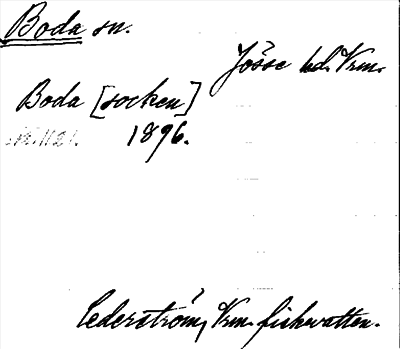 Boda sn.
Jösse hd. Vrm.
Boda [socken]
1896.
Cederström, Vrm. fiskevatten.